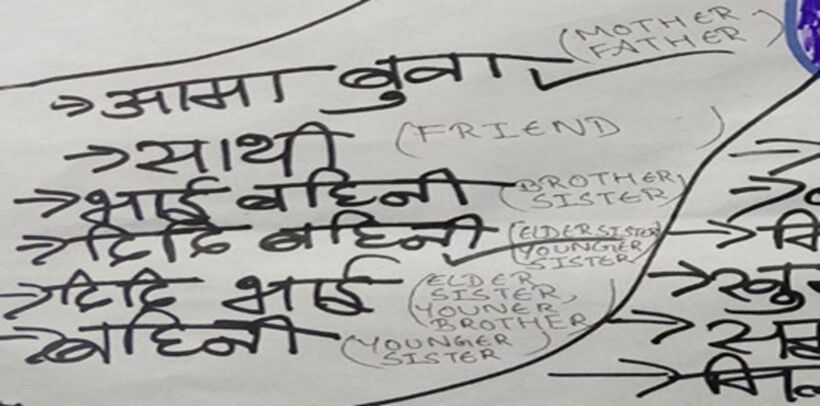 →आमा बुवा (MOTHER
FATHER)
→साथी (FRIEND)
→भाई बहिनी (BROTHER,
SISTER)
→दिदि बहिनी (ELDER SISTER
YOUNGER
SISTER)
→दिदि भाई (ELDER
SISTER,
YOUNER
BROTHER)
→बहिनी (YOUNGER
SISTER)